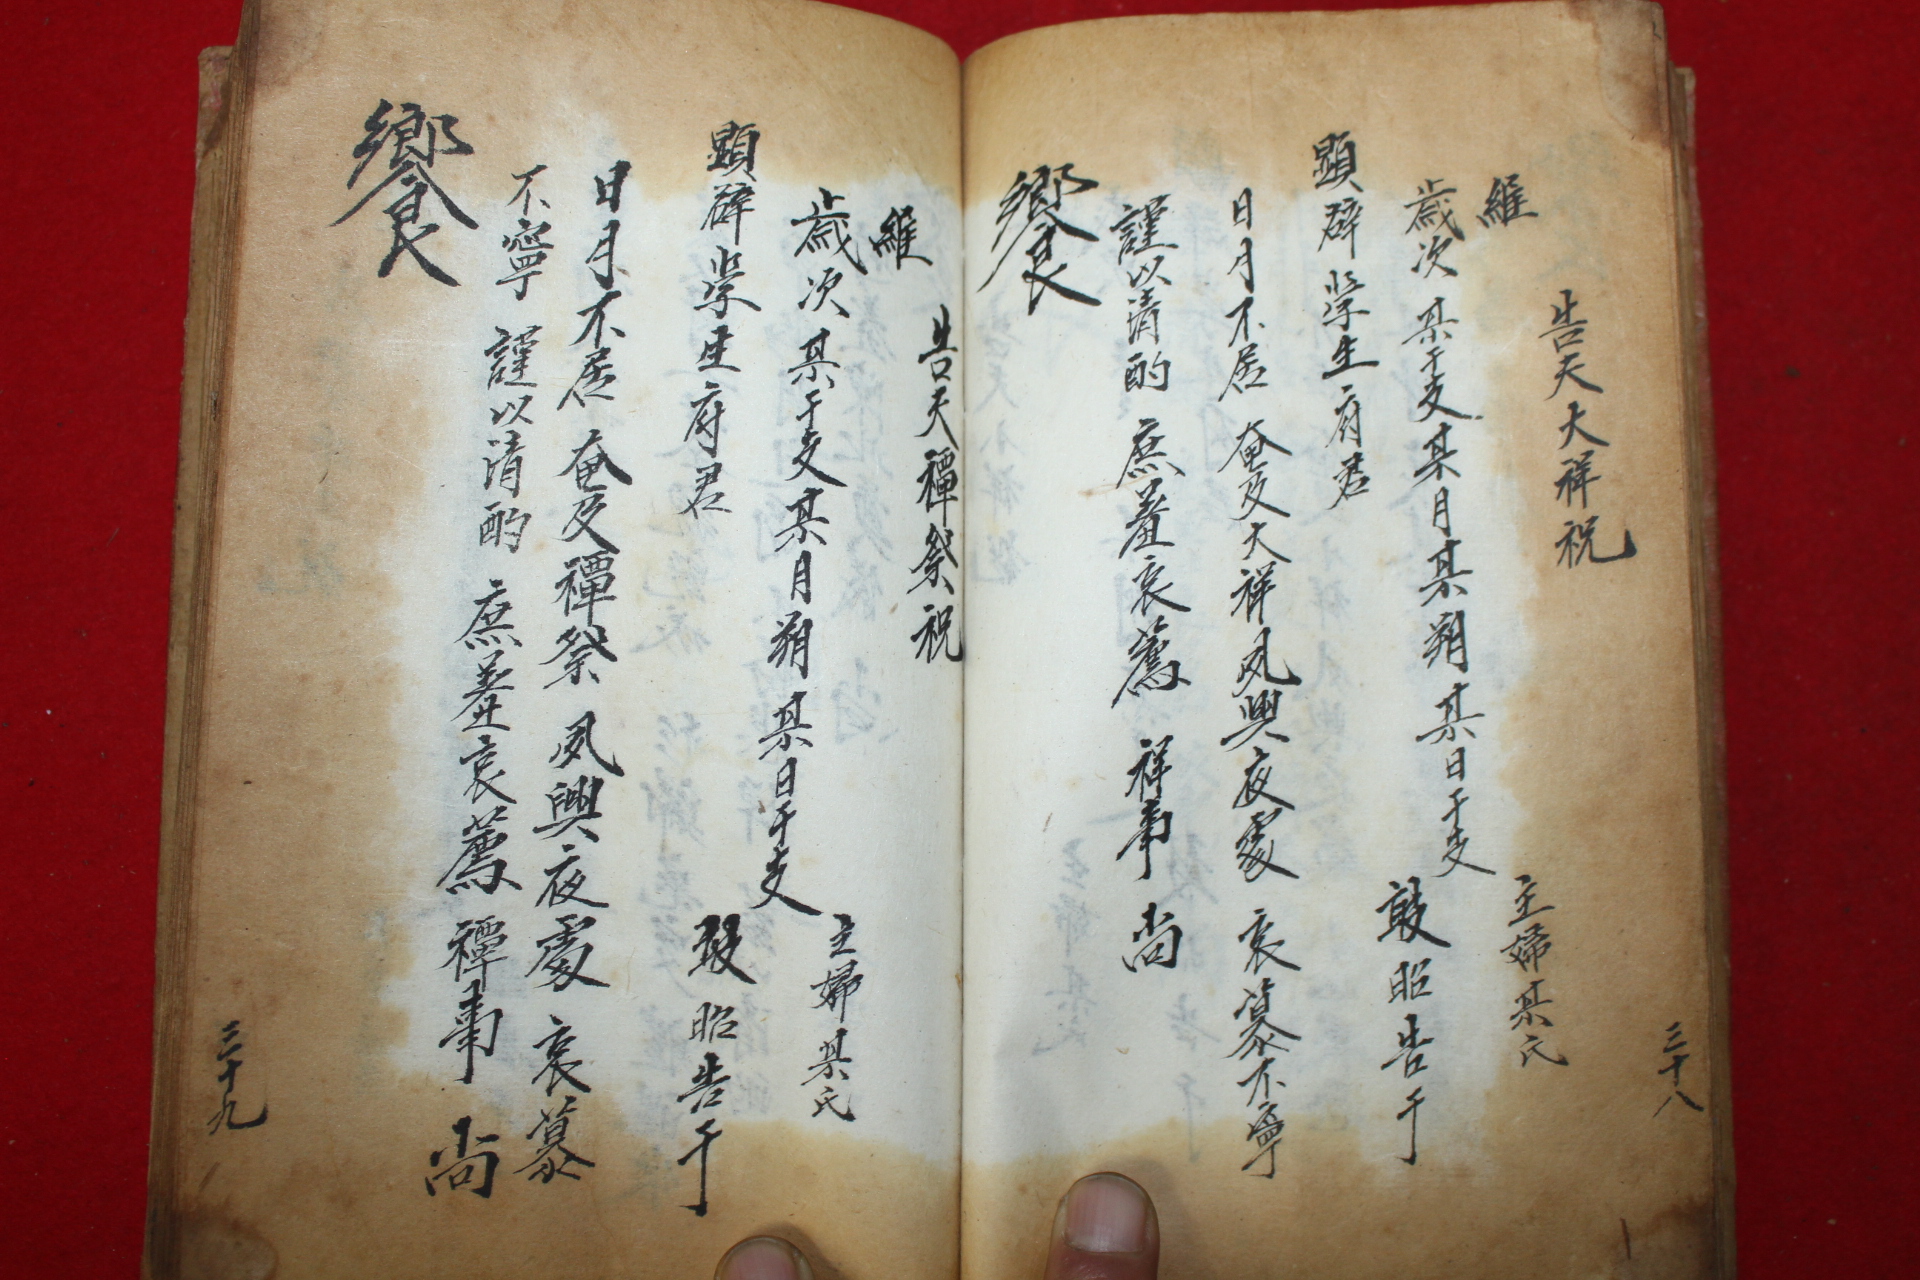 告夫大祥祝
維
歲次某干支某月某朔某日干支 主婦某氏
敢昭告于
顯辟學生府君
日月不居奄及大祥夙興夜處哀慕不寧
謹以清酌庶羞哀薦祥事尚
饗
三十八
告夫禫祭祝
維
歲次某干支某月朔某日干支 主婦某氏
敢昭告于
顯辟學生府君
日月不居奄及禫祭夙興夜處哀慕
不寧謹以清酌庶羞哀薦禫事尚
饗
三十九